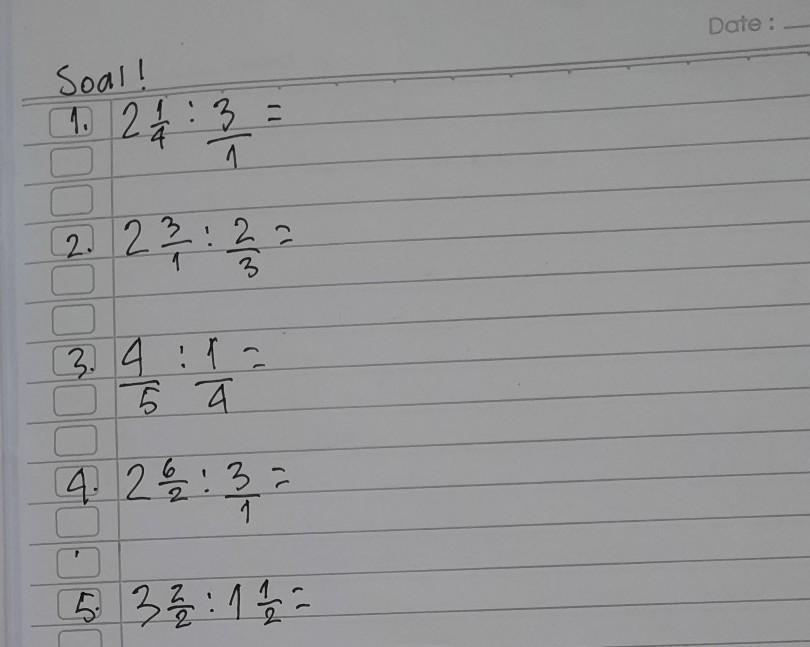 Date :
Soal!
1. 2 1/4 : 3/1 =
2. 2 3/1 : 2/3 =
3. 4/5 : 1/4 =
4. 2 6/2 : 3/1 =
5. 3 2/2 : 1 1/2 =